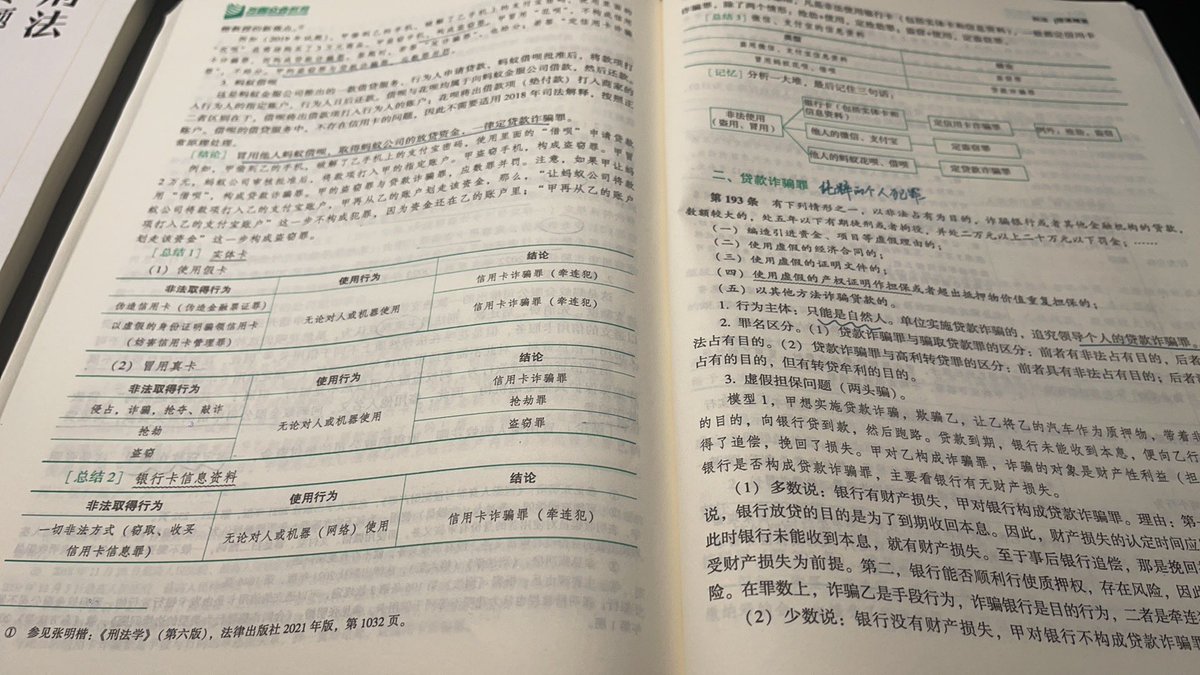 刑法
3. 蚂蚁借呗
这是蚂蚁金服公司推出的一款借贷服务。行为人申请贷款，蚂蚁借呗批准后，将款项打
入行为人的指定账户。行为人日后还款。借呗与花呗均属于向蚂蚁金服公司借款，然后还款。
二者区别在于，借呗将出借款项打入行为人的账户；花呗将出借款项（垫付款）打入商家的
账户。借呗的借贷服务中，不存在信用卡的问题，因此不需要适用2018年司法解释，按照正
常原理处理。
［结论］冒用他人蚂蚁借呗，取得蚂蚁公司的放贷资金，一律定贷款诈骗罪。
例如，甲偷到乙的手机，破解了乙手机上的支付宝密码，使用里面的“借呗”申请贷款
2万元，蚂蚁公司审核批准后，将款项打入甲的指定账户。甲盗窃手机，构成盗窃罪。甲冒
用“借呗”，构成贷款诈骗罪。甲的盗窃罪与贷款诈骗罪，应数罪并罚。注意，如果甲让蚂
蚁公司将款项打入乙的支付宝账户，甲再从乙的账户划走该资金，那么，“让蚂蚁公司将款
项打入乙的支付宝账户”这一步不构成犯罪，因为资金还在乙的账户里；“甲再从乙的账户
划走该资金”这一步构成盗窃罪。
［总结1］实体卡
（1）使用假卡
非法取得行为 使用行为 结论
伪造信用卡（伪造金融票证罪） 无论对人或机器使用 信用卡诈骗罪（牵连犯）
以虚假的身份证明骗领信用卡 信用卡诈骗罪（牵连犯）
（妨害信用卡管理罪）
（2）冒用真卡
非法取得行为 使用行为 结论
侵占，诈骗，抢夺、敲诈 无论对人或机器使用 信用卡诈骗罪
抢劫 抢劫罪
盗窃 盗窃罪
［总结2］银行卡信息资料
非法取得行为 使用行为 结论
一切非法方式（窃取、收买 无论对人或机器（网络）使用 信用卡诈骗罪（牵连犯）
信用卡信息罪）
① 参见张明楷：《刑法学》（第六版），法律出版社2021年版，第1032页。
［总结3］微信、支付宝的信息资料
类型
冒用微信、支付宝信息资料
冒用蚂蚁花呗、借呗 贷款诈骗罪
［记忆］分析一大堆，最后记住三句话：
非法使用
（盗用、冒用）
银行卡（包括实体卡和
信息资料） 定信用卡诈骗罪 例外：抢劫，盗窃
他人的微信、支付宝 定盗窃罪
他人的蚂蚁花呗、借呗 定贷款诈骗罪
二、贷款诈骗罪 纯粹的个人犯罪
第193条 有下列情形之一，以非法占有为目的，诈骗银行或者其他金融机构的贷款，
数额较大的，处五年以下有期徒刑或者拘役，并处二万元以上二十万元以下罚金；……
（一）编造引进资金、项目等虚假理由的；
（二）使用虚假的经济合同的；
（三）使用虚假的证明文件的；
（四）使用虚假的产权证明作担保或者超出抵押物价值重复担保的；
（五）以其他方法诈骗贷款的。
1. 行为主体：只能是自然人。单位实施贷款诈骗的，追究领导个人的贷款诈骗罪。
2. 罪名区分。（1）贷款诈骗罪与骗取贷款罪的区分：前者有非法占有目的，后者
法占有目的。（2）贷款诈骗罪与高利转贷罪的区分：前者具有非法占有目的；后者
占有的目的，但有转贷牟利的目的。
3. 虚假担保问题（两头骗）。
模型1，甲想实施贷款诈骗，欺骗乙，让乙将乙的汽车作为质押物，带着非
的目的，向银行贷到款，然后跑路。贷款到期，银行未能收到本息，便向乙行
得了追偿，挽回了损失。甲对乙构成诈骗罪，诈骗的对象是财产性利益（担
银行是否构成贷款诈骗罪，主要看银行有无财产损失。
（1）多数说：银行有财产损失，甲对银行构成贷款诈骗罪。理由：第一
说，银行放贷的目的是为了到期收回本息。因此，财产损失的认定时间应
此时银行未能收到本息，就有财产损失。至于事后银行追偿，那是挽回
受财产损失为前提。第二，银行能否顺利行使质押权，存在风险，因此
险。在罪数上，诈骗乙是手段行为，诈骗银行是目的行为，二者是牵连
（2）少数说：银行没有财产损失，甲对银行不构成贷款诈骗罪